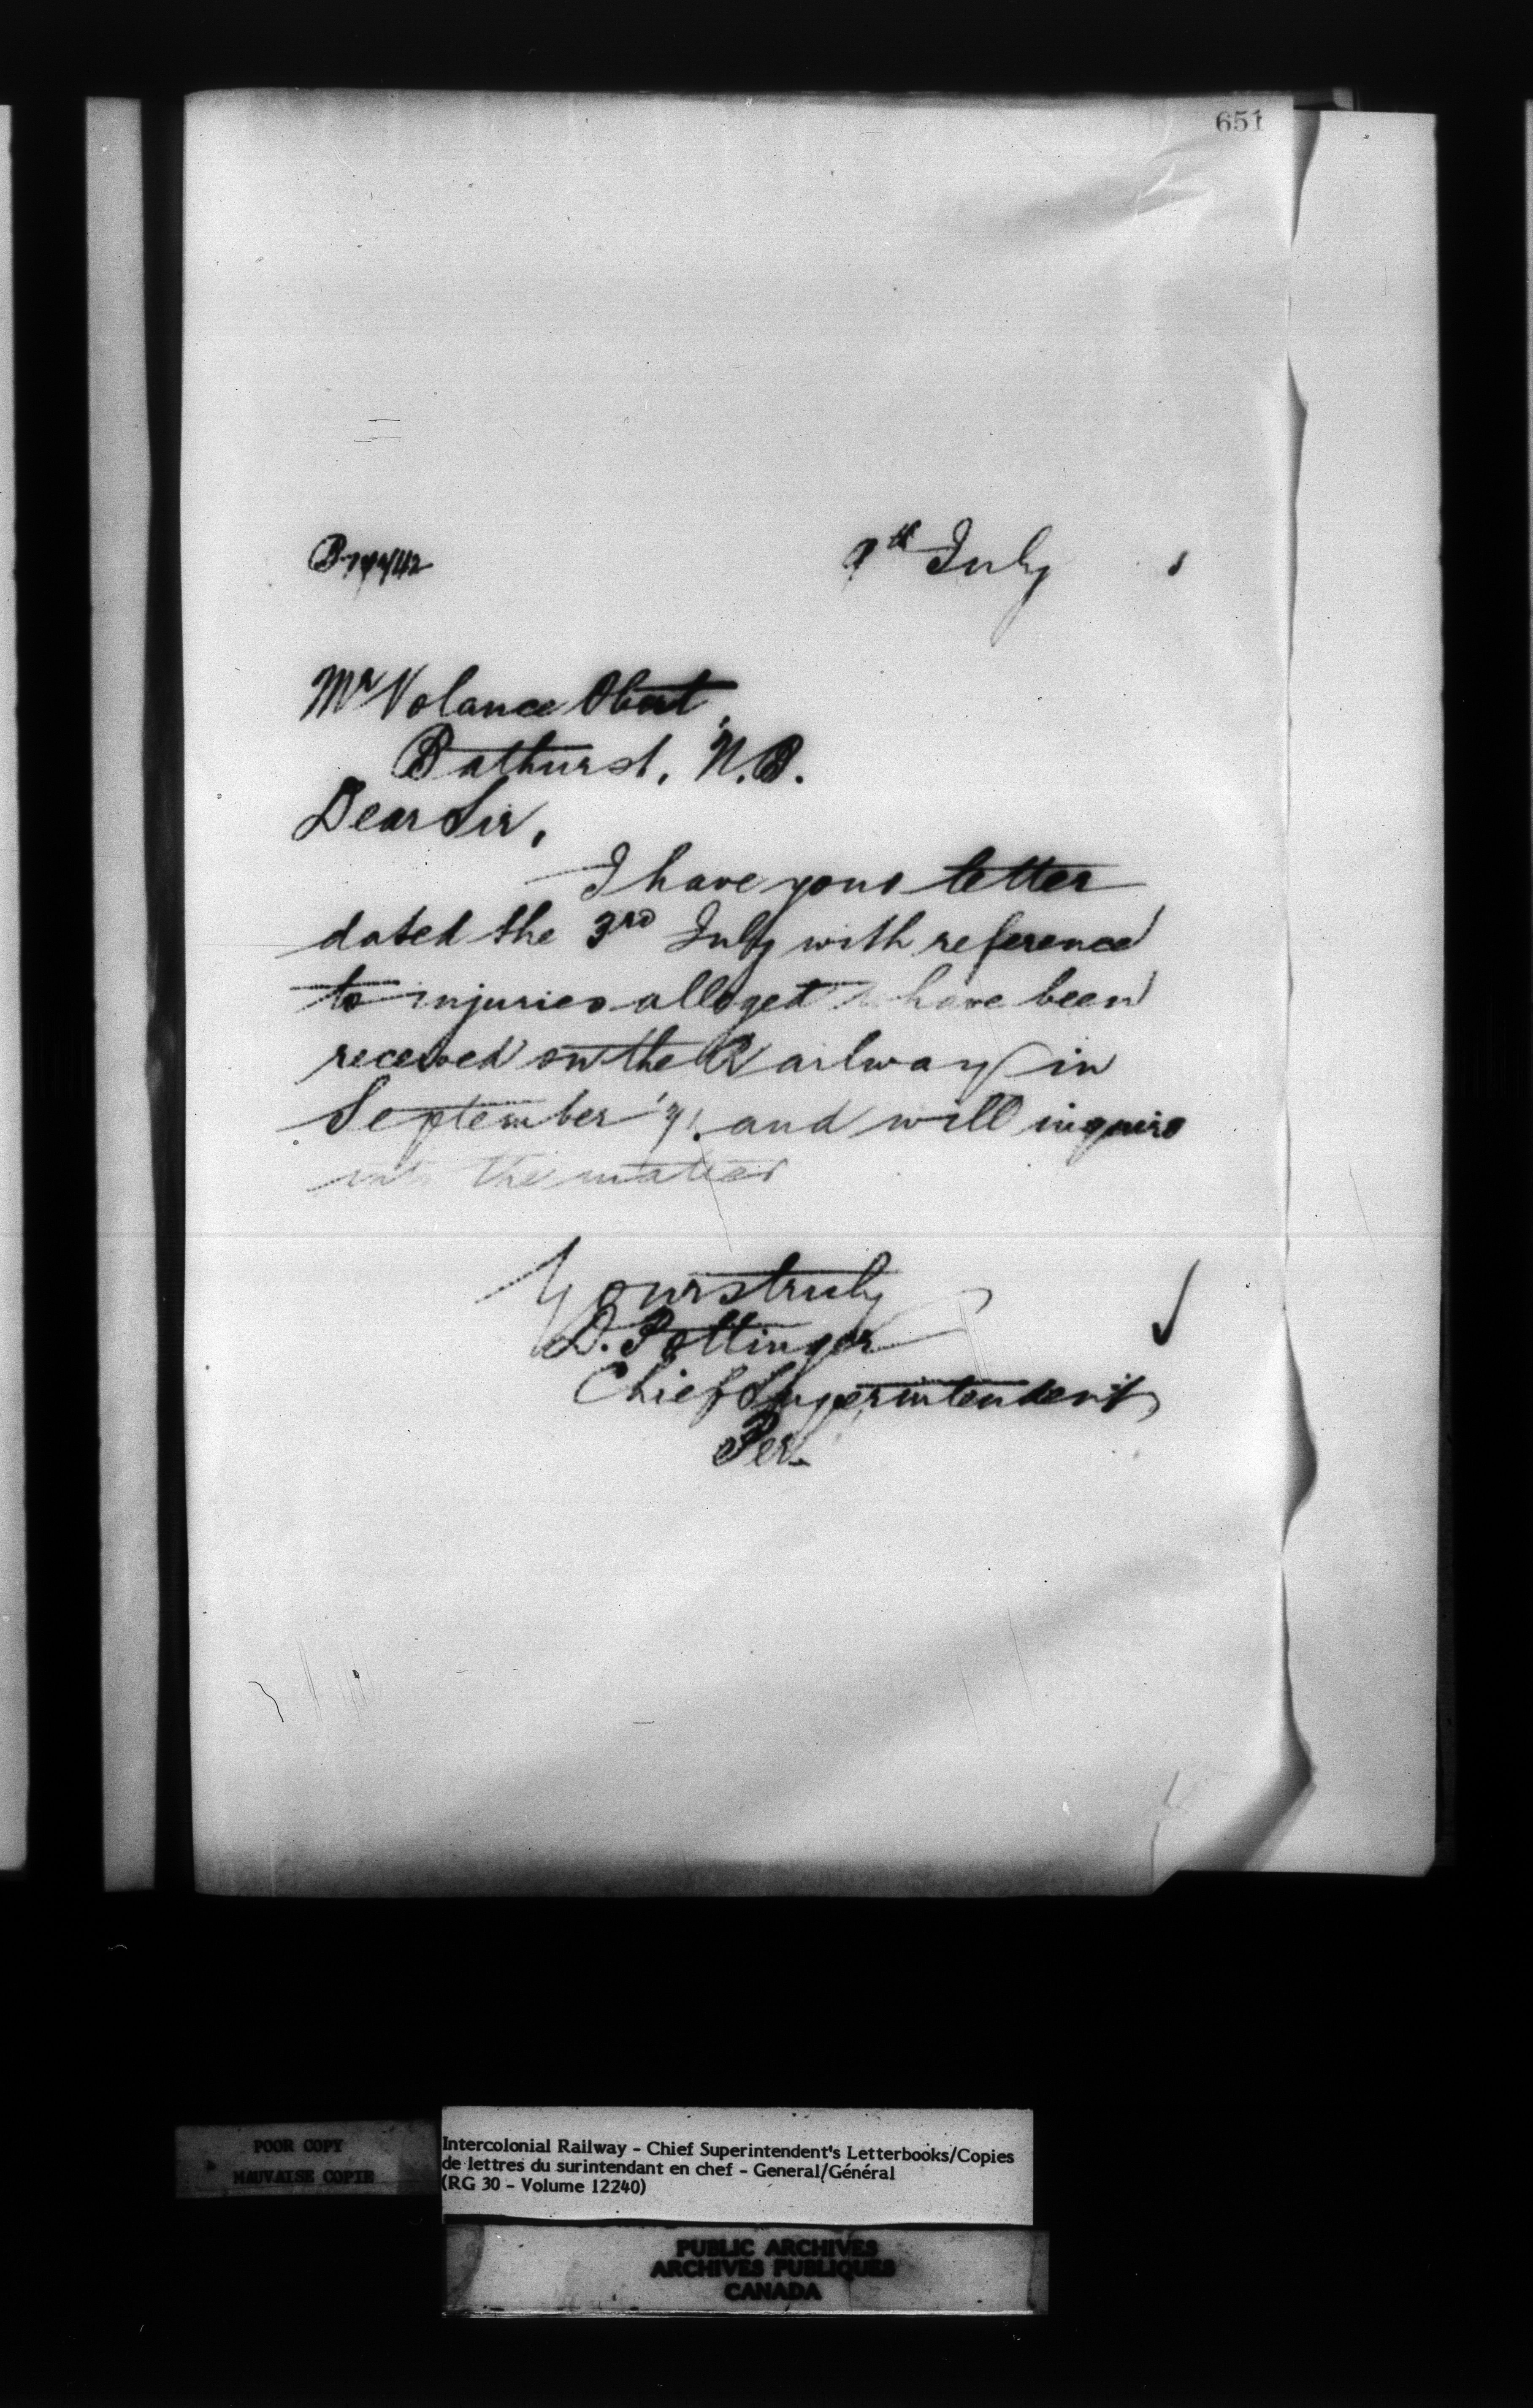 651
9th July
Mr Volance Obert
Bathurst, N.B.
Dear Sir,
I have your letter
dated the 3rd July with reference
to injuries alleged to have been
received on the Railway in
September and will inquire
into the matter
Yours truly
D. Pottinger
Chief Superintendent
Per.
POOR COPY
MAUVAISE COPIE
Intercolonial Railway - Chief Superintendent's Letterbooks/Copies
de lettres du surintendant en chef - General/Général
(RG 30 - Volume 12240)
PUBLIC ARCHIVES
ARCHIVES PUBLIQUES
CANADA